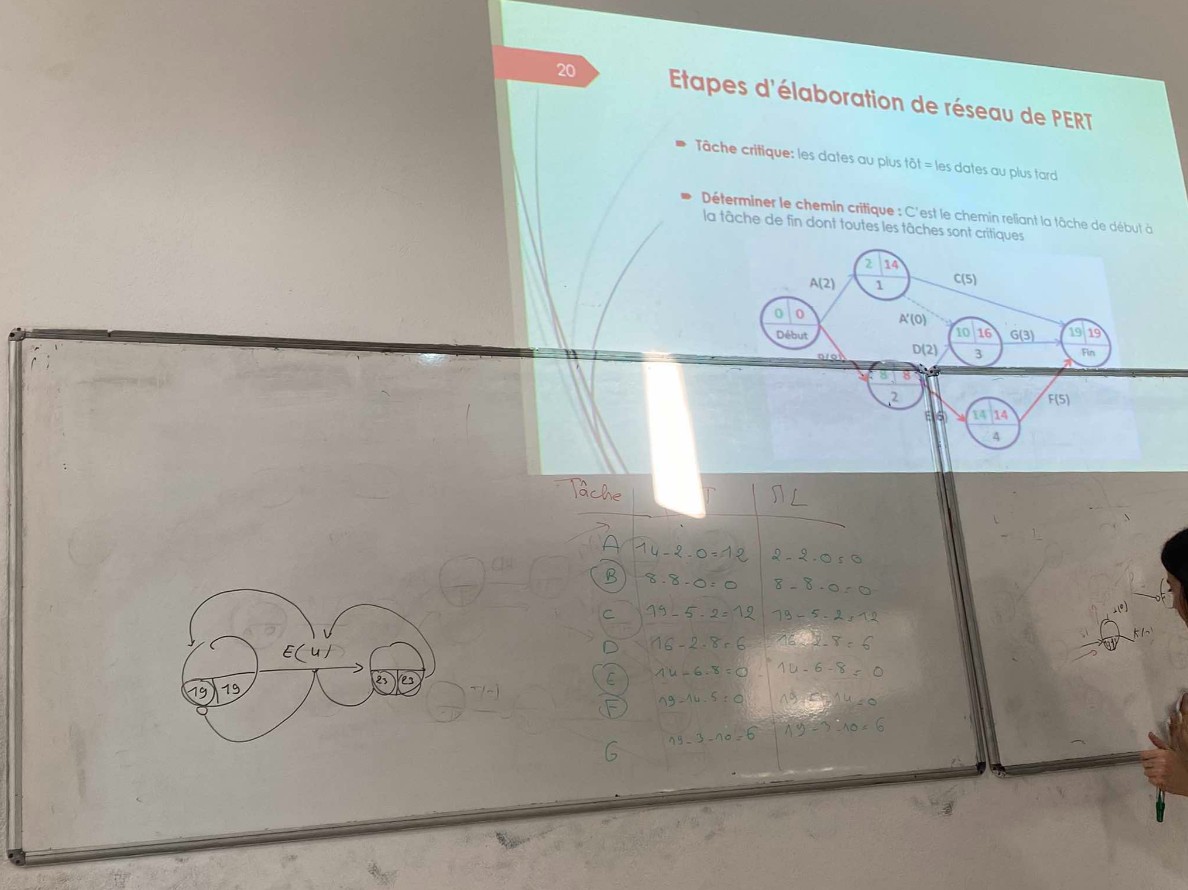 20
Etapes d'élaboration de réseau de PERT
Tâche critique: les dates au plus tôt = les dates au plus tard
Déterminer le chemin critique : C'est le chemin reliant la tâche de début à
la tâche de fin dont toutes les tâches sont critiques
2 14
1
A(2)
C(5)
0 0
Début
A'(0)
10 16
3
G(3)
19 19
Fin
D(2)
8 8
2
14 14
4
F(5)
Tâche T ML
A 14-2-0=12 2-2-0=0
B 8-8-0=0 8-8-0=0
C 19-5-2=12 19-5-2=12
D 16-2-8=6 16-2-8=6
E 14-6-8=0 14-6-8=0
F 19-14-5=0 19-5-14=0
G 19-3-10=6 19-3-10=6
E(4)
19 19
23 23